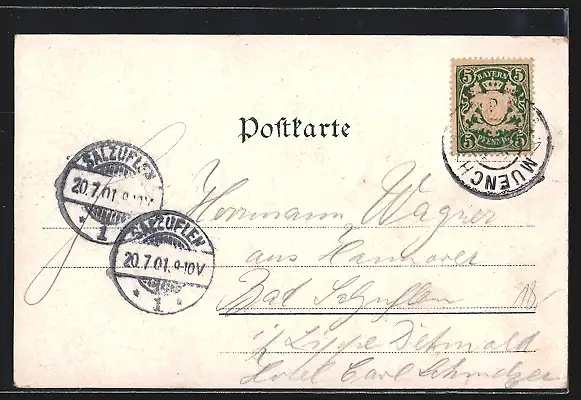 5 BAYERN 5
5 PFENNIG 5
MUENCH
Postkarte
SALZUFLEN
20.7.01. 9-10V
* 1 *
SALZUFLEN
20.7.01. 9-10V
* 1 *
Herrmann Wagner
aus Hannover
Bad Salzuflen
i/ Lippe Detmold
Hotel Carl